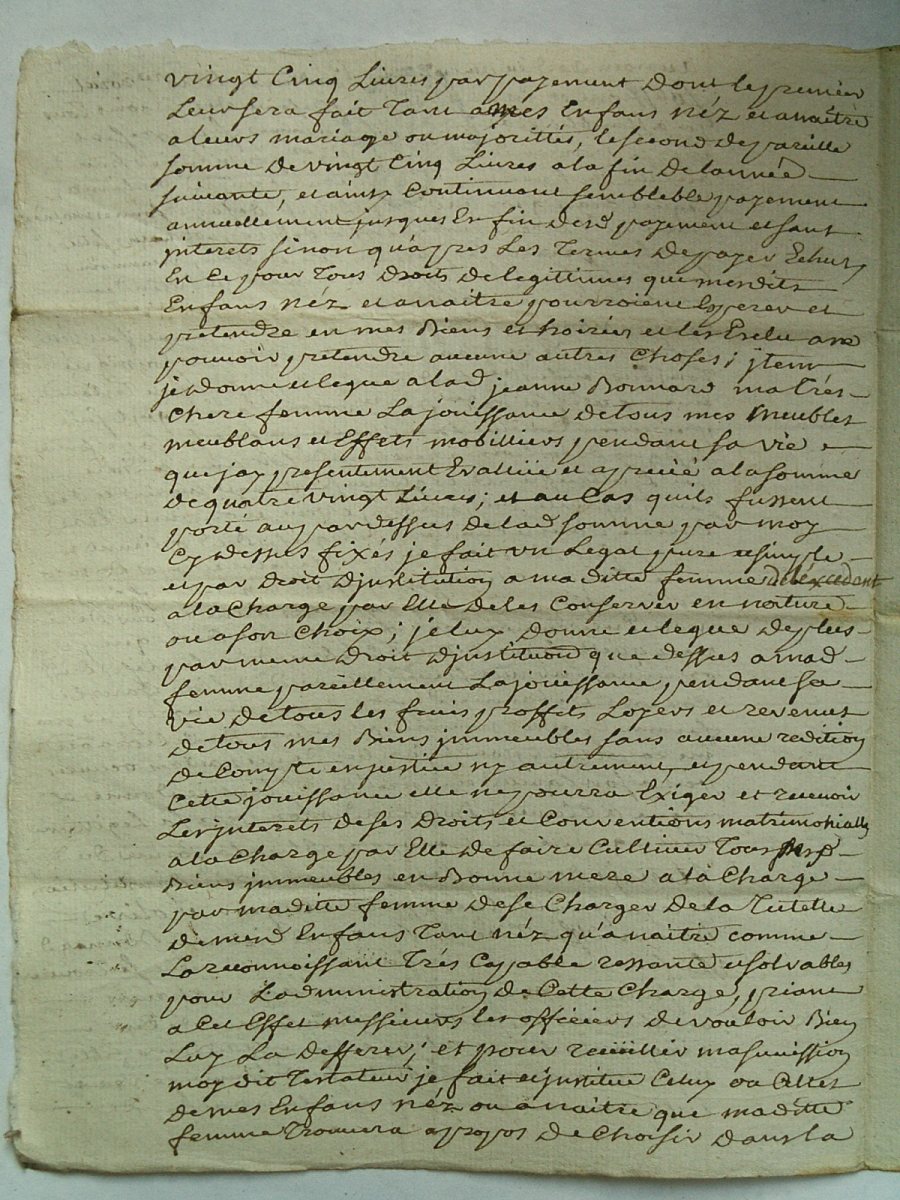 vingt Cinq Livres par payement Dont le premier
Leur sera fait Tant a mes Enfans néz et a naitre
a leurs mariage ou majorittés, le second de pareille
somme De vingt Cinq Livres a la fin De lannée
suivante, et ainsy Continuant semblable payement
annuellement jusques En fin de payement et sans
jnterets sinon qu'apres Les Termes De payer Echus
En Ce pour Tous Droits de legittimes que mesdits
Enfans néz et a naitre pourroient Esperer et
pretendre en mes Biens et hoiries et les Exclu
pouvoir pretendre aucune autres Choses; jtem
je Donne et legue a lad jeanne Bonnard ma très
Chere femme La jouissance de tous mes Meubles
meublans et Effets mobilliers pendant sa vie
que jay presentement Evallüé et aprecié a la somme
De quatre vingt Livres; et au Cas quils fussent
porté au par dessus de lad somme par moy
Cy dessus fixés je fait un Legat pure et simple
et par Droit Djnstitution a ma ditte femme de léxcedent
a la Charge par Elle De les Conserver en nature
ou a son Choix; je luy Donne et legue De plus
par meme Droit Djnstitution que dessus a mad
femme pareillement La jouissance pendant sa
vie De tous les fruis proffits Loyers et revenus
de tous mes Biens jmmeubles sans aucune redition
De Compte en justice ny autrement, et pendant
Cette jouissance elle ne pourra Exiger et recevoir
Les jnterets De ses Droits et Conventions matrimonialles
a la Charge par Elle De faire Cultiver Tous
Biens jmmeubles en Bonne mere a la Charge
par maditte femme De se Charger De la Tutelle
de mesd Enfans Tant néz qu'a naitre comme
La reconnoissant Trés Capable et solvables
pour Ladministration De Cette Charge, priant
a Cet Effet messieurs les officiers de vouloir Bien
Luy La defferer; et pour reciüillir ma sucission
moy dit Testateur je fait et jnstitue Celuy ou Celles
De mes Enfans néz ou a naitre que maditte
femme Trouvera a propos De Choisir Dans la